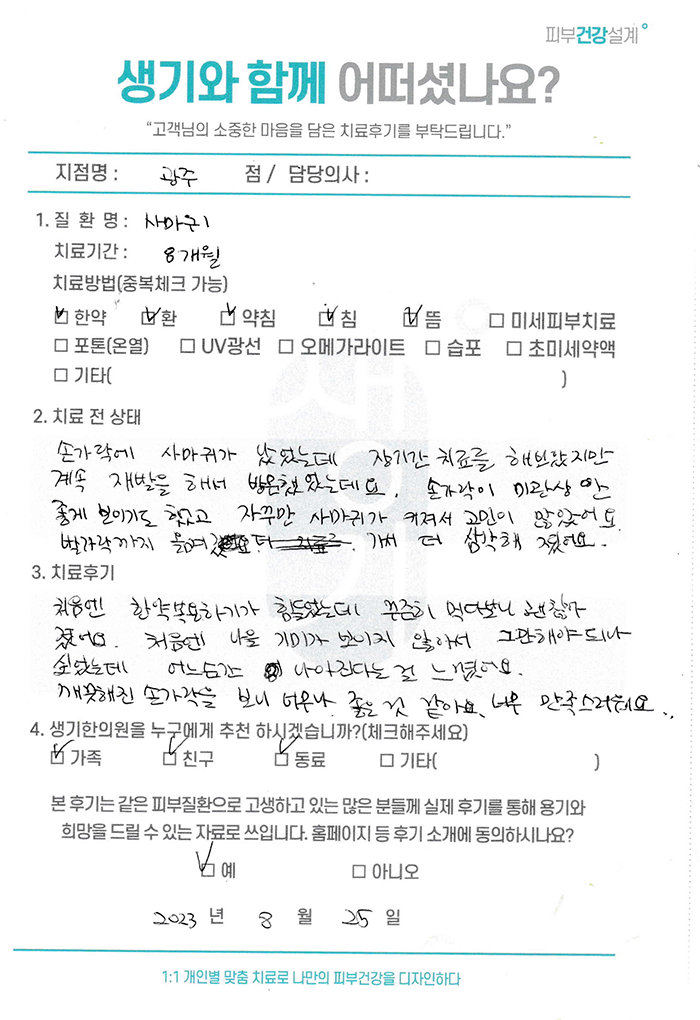 피부건강설계
생기와 함께 어떠셨나요?
"고객님의 소중한 마음을 담은 치료후기를 부탁드립니다."
지점명 : 광주 점 / 담당의사 :
1. 질 환 명 : 사마귀
치료기간 : 8개월
치료방법(중복체크 가능)
☑ 한약 ☑ 환 ☑ 약침 ☑ 침 ☑ 뜸 □ 미세피부치료
□ 포톤(온열) □ UV광선 □ 오메가라이트 □ 습포 □ 초미세약액
□ 기타( )
2. 치료 전 상태
손가락에 사마귀가 났었는데 장기간 치료를 해보았지만
계속 재발을 해서 방문했었는데요. 손가락이 미관상 안
좋게 보이기도 했고 자꾸만 사마귀가 커져서 고민이 많았어요.
발가락까지 옮겨 가서 더 심각해 졌어요.
3. 치료후기
처음엔 한약복용하기가 힘들었는데 꾸준히 먹다보니 괜찮아
졌어요. 처음엔 나을 기미가 보이지 않아서 그만해야되나
싶었는데 어느순간 나아진다는 걸 느꼈어요.
깨끗해진 손가락을 보니 너무나 좋은 것 같아요. 너무 만족스러워요..
4. 생기한의원을 누구에게 추천 하시겠습니까?(체크해주세요)
☑ 가족 ☑ 친구 ☑ 동료 □ 기타( )
본 후기는 같은 피부질환으로 고생하고 있는 많은 분들께 실제 후기를 통해 용기와
희망을 드릴 수 있는 자료로 쓰입니다. 홈페이지 등 후기 소개에 동의하시나요?
☑ 예 □ 아니오
2023 년 8 월 25 일
1:1 개인별 맞춤 치료로 나만의 피부건강을 디자인하다